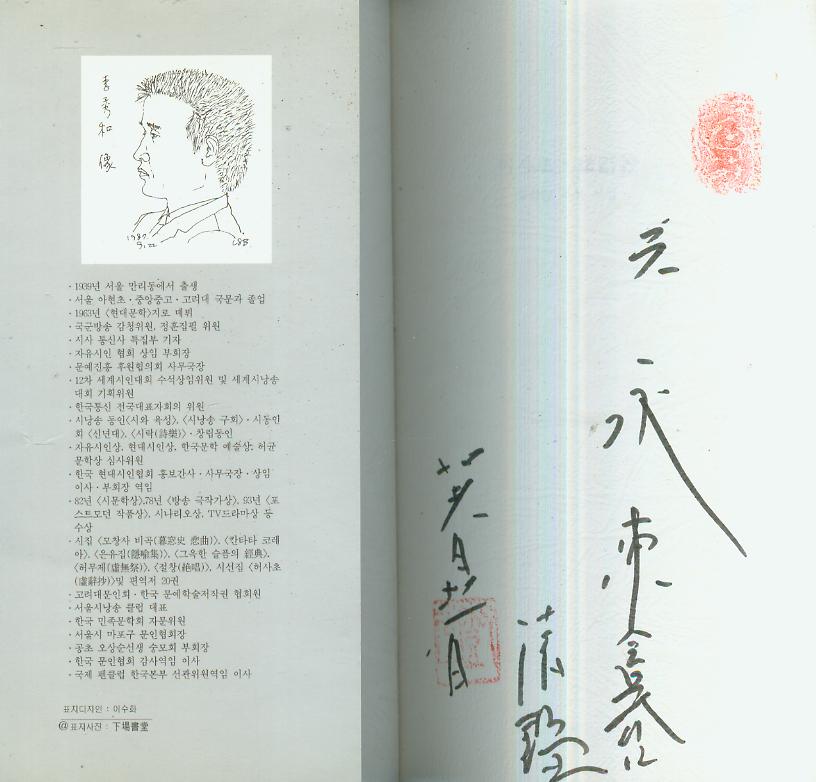 李秀和 像
1987
9.22
LSB
· 1939년 서울 만리동에서 출생
· 서울 아현초 · 중앙중고 · 고려대 국문과 졸업
· 1963년 〈현대문학〉지로 데뷔
· 국군방송 감청위원, 정훈집필 위원
· 지사 통신사 특집부 기자
· 자유시인 협회 상임 부회장
· 문예진흥 후원협의회 사무국장
· 12차 세계시인대회 수석상임위원 및 세계시낭송
대회 기획위원
· 한국통신 전국대표자회의 위원
· 시낭송 동인〈시와 육성〉, 〈시낭송 구회〉 · 시동인
회 〈신년대〉, 〈시락(詩樂)〉 · 창립동인
· 자유시인상, 현대시인상, 한국문학 예술상; 허균
문학상 심사위원
· 한국 현대시인협회 홍보간사 · 사무국장 · 상임
이사 · 부회장 역임
· 82년 〈시문학상〉,78년 〈방송 극작가상〉, 93년 〈포
스트모던 작품상〉, 시나리오상, TV드라마상 등
수상
· 시집 〈모창사 비곡(暮窓史 悲曲)〉, 〈칸타타 코레
아〉, 〈은유집(隱喩集)〉, 〈그윽한 슬픔의 經典〉,
〈허무제(虛無祭)〉, 〈절창(絶唱)〉, 시선집 〈허사초
(虛辭抄)〉및 편역저 20권
· 고려대문인회 · 한국 문예학술저작권 협회원
· 서울시낭송 클럽 대표
· 한국 민족문학회 자문위원
· 서울시 마포구 문인협회장
· 공초 오상순선생 숭모회 부회장
· 한국 문인협회 감사역임 이사
· 국제 펜클럽 한국본부 선관위원역임 이사
표지디자인 : 이수화
@표지사진 : 下場書堂